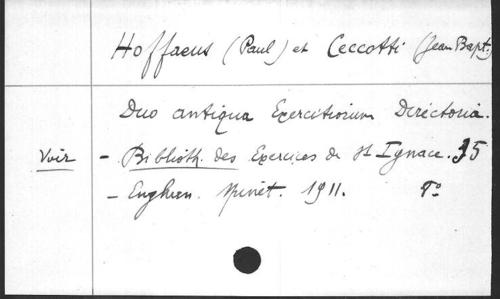 Hoffaeus (Paul) et Ceccotti (Jean Bapt.)
Duo antiqua Exercitiorum Directoria.
Voir - Biblioth. des Exercices de St Ignace. 35
- Enghien. Spinet. 1911.